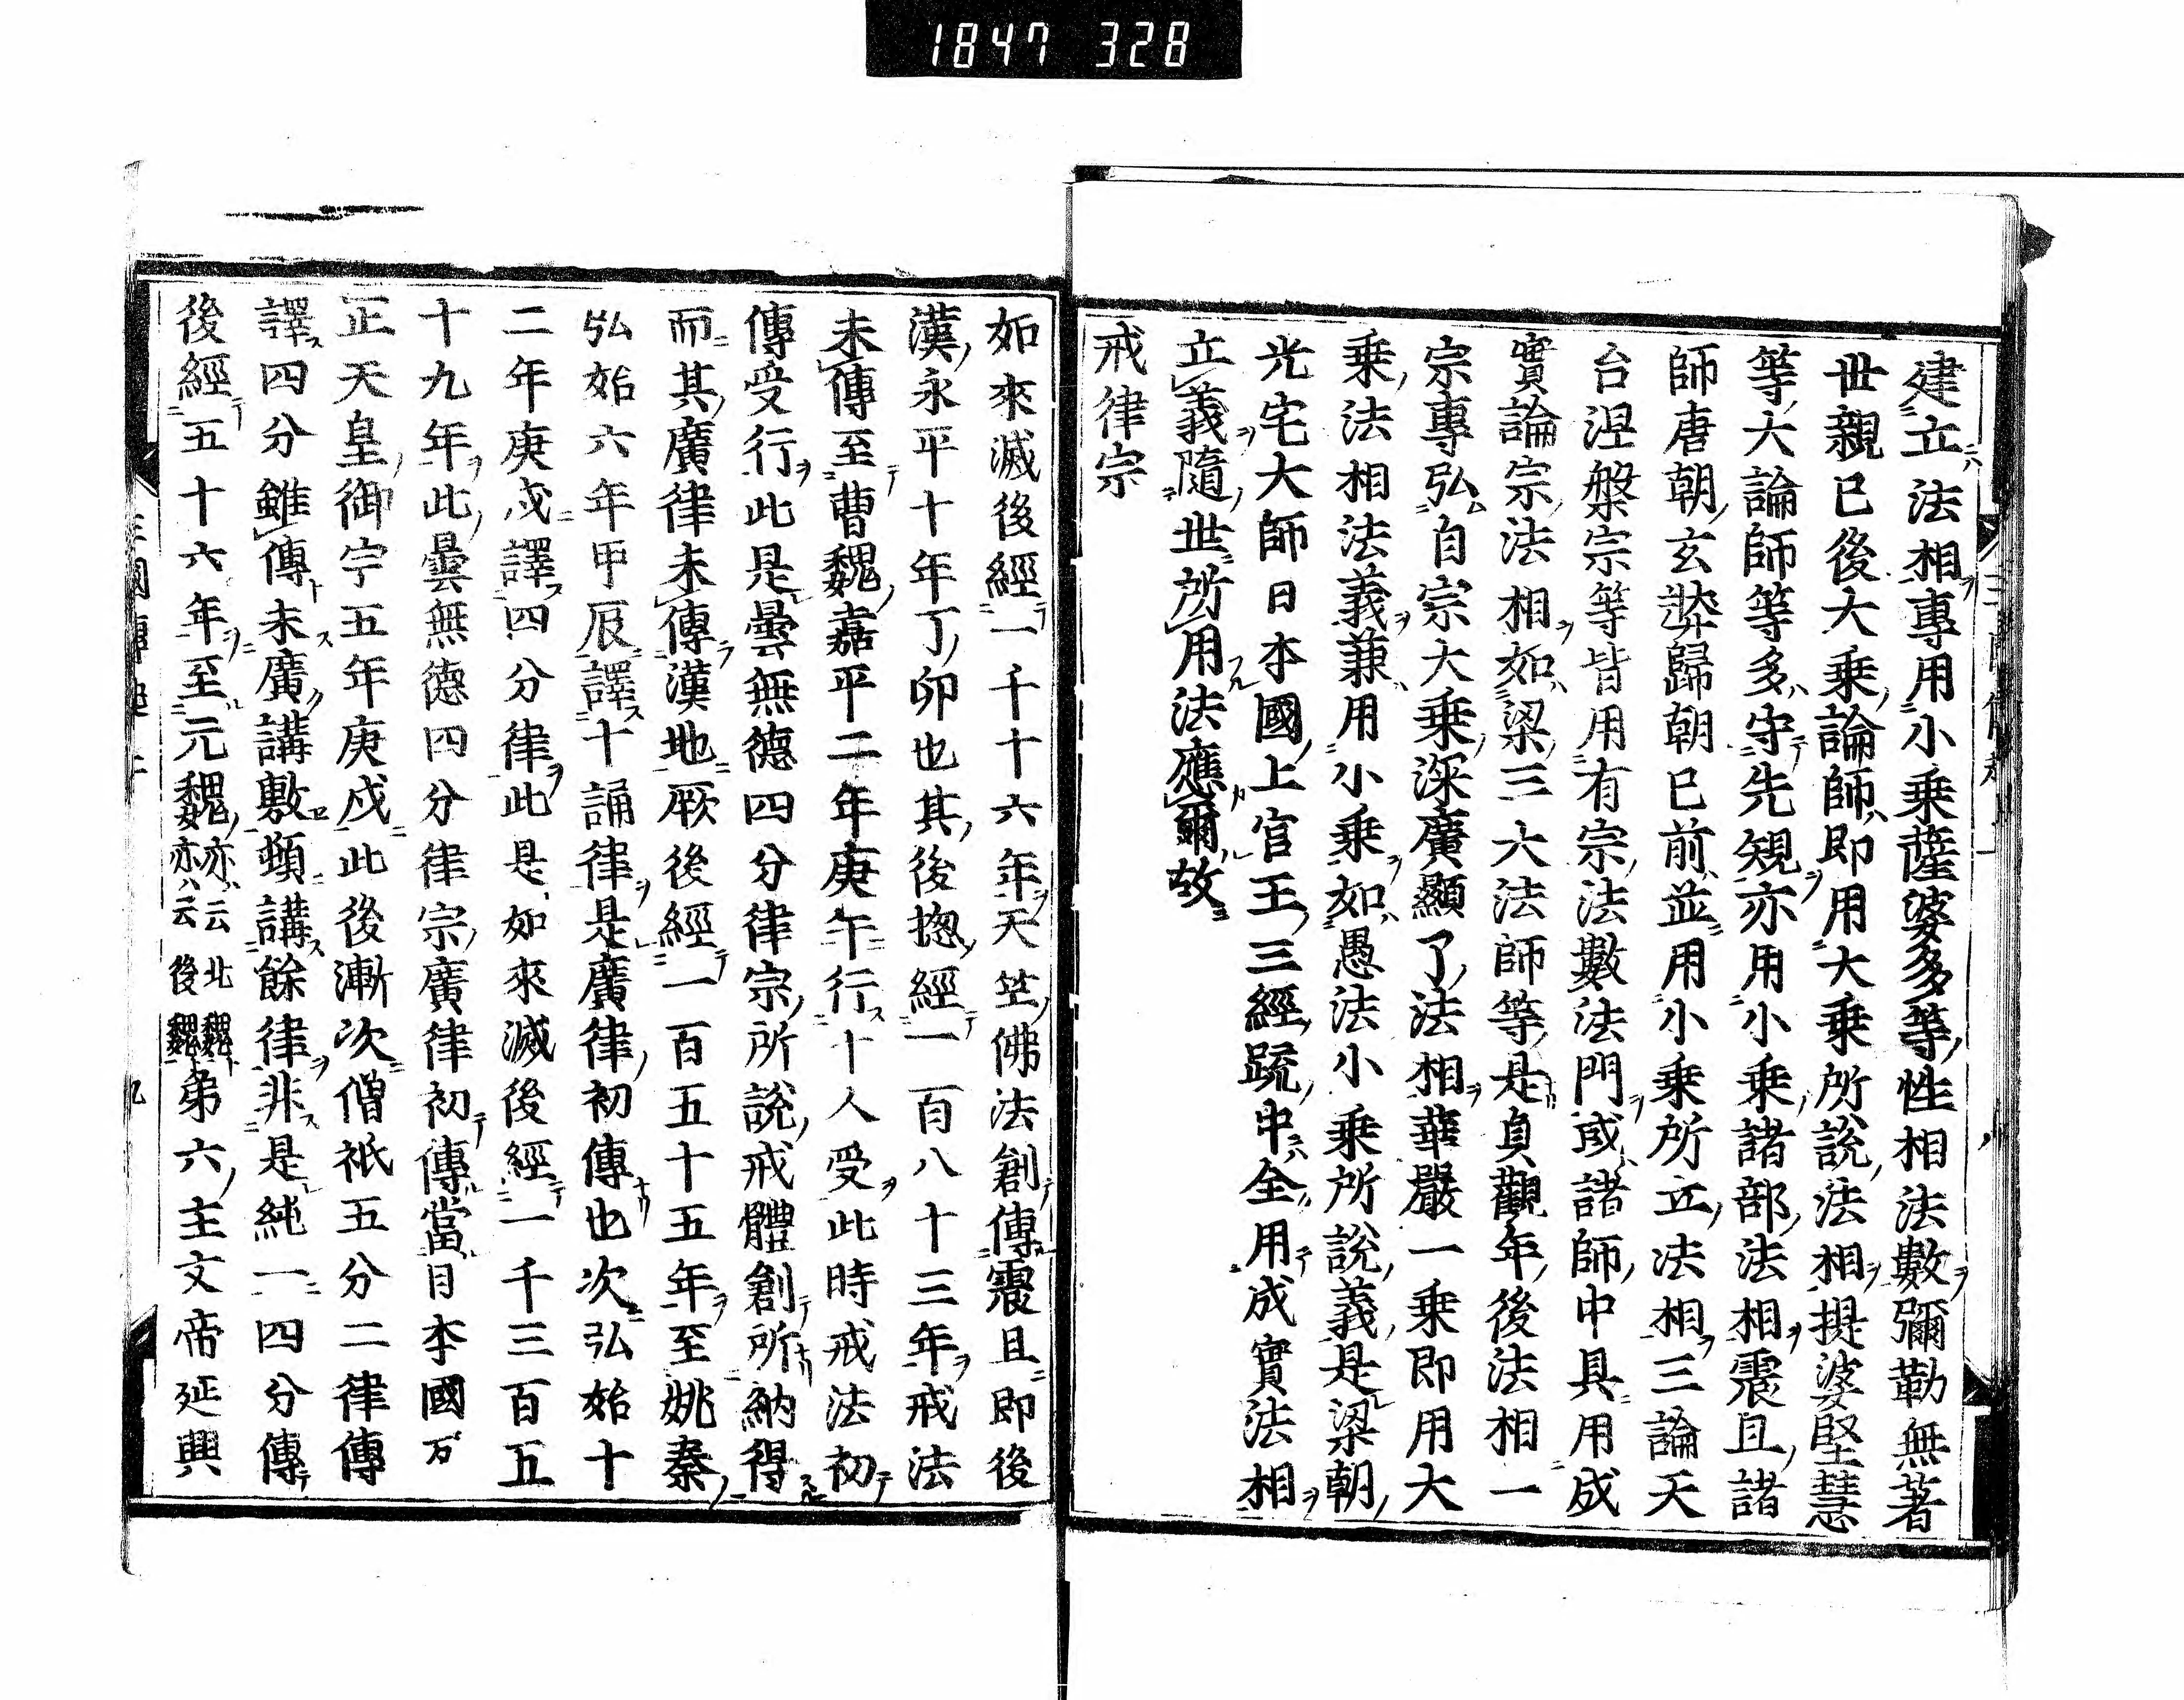 1847 328
建立法相專用小乗薩婆多等性相法數彌勒無著
世親已後大乗論師即用大乗所說法相提婆堅慧
等大論師等多守先規亦用小乗諸部法相震旦諸
師唐朝玄奘歸朝已前並用小乗所立法相三論天
台涅槃宗等皆用有宗法數法門或諸師中具用成
實論宗法相如梁三大法師等是貞觀年後法相一
宗專弘自宗大乗深廣顯了法相華嚴一乗即用大
乗法相法義兼用小乗如愚法小乗所說義是梁朝
光宅大師日本國上官王三經疏中全用成實法相
立義隨世所用法應爾故
戒律宗
如來滅後經一千十六年天竺佛法創傳震旦即後
漢永平十年丁卯也其後揔經一百八十三年戒法
未傳至曹魏嘉平二年庚午行十人受此時戒法初
傳受行此是曇無德四分律宗所說戒體創所納得
而其廣律未傳漢地厥後經一百五十五年至姚秦
弘始六年甲辰譯十誦律是廣律初傳也次弘始十
二年庚戌譯四分律此是如來滅後經一千三百五
十九年此曇無德四分律宗廣律初傳當日本國𠮷
正天皇御宇五年庚戌此後漸次僧祇五分二律傳
譯四分雖傳未廣講敷頻講餘律非是純一四分傳
後經五十六年至元魏亦云北魏亦云後魏第六主文帝延興